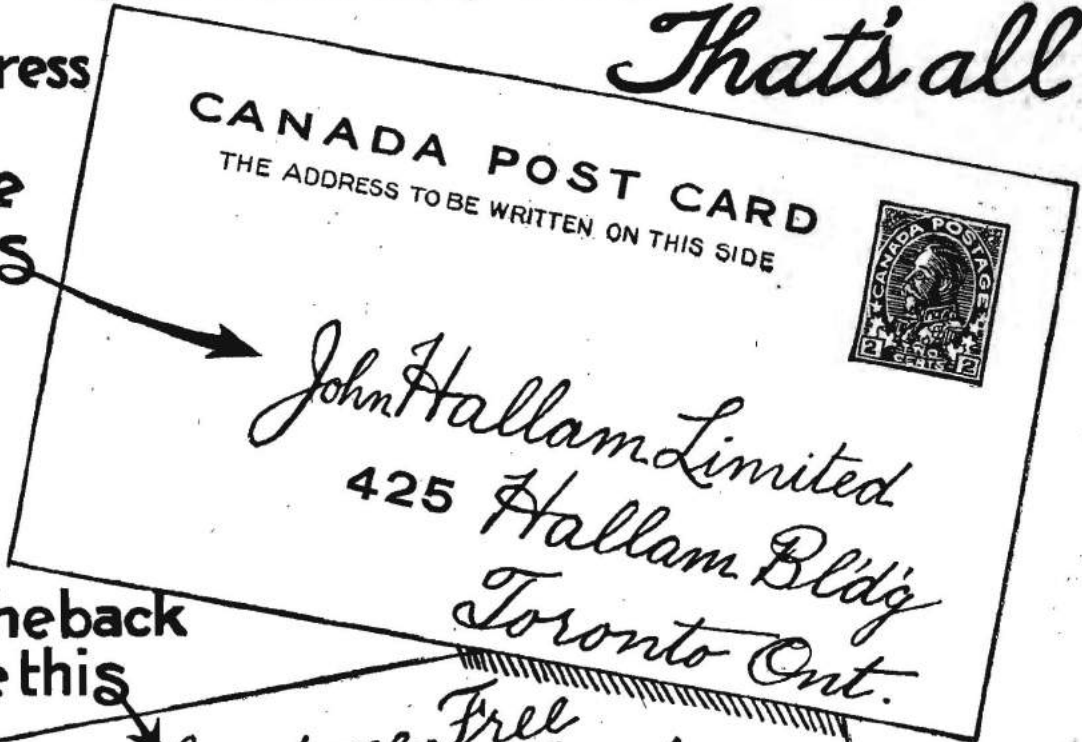 That's all
ress
CANADA POST CARD
THE ADDRESS TO BE WRITTEN ON THIS SIDE
CANADA POSTAGE
2 CENTS 2
John Hallam Limited
425 Hallam Bl'd'g
Toronto Ont.
heback
this
Free